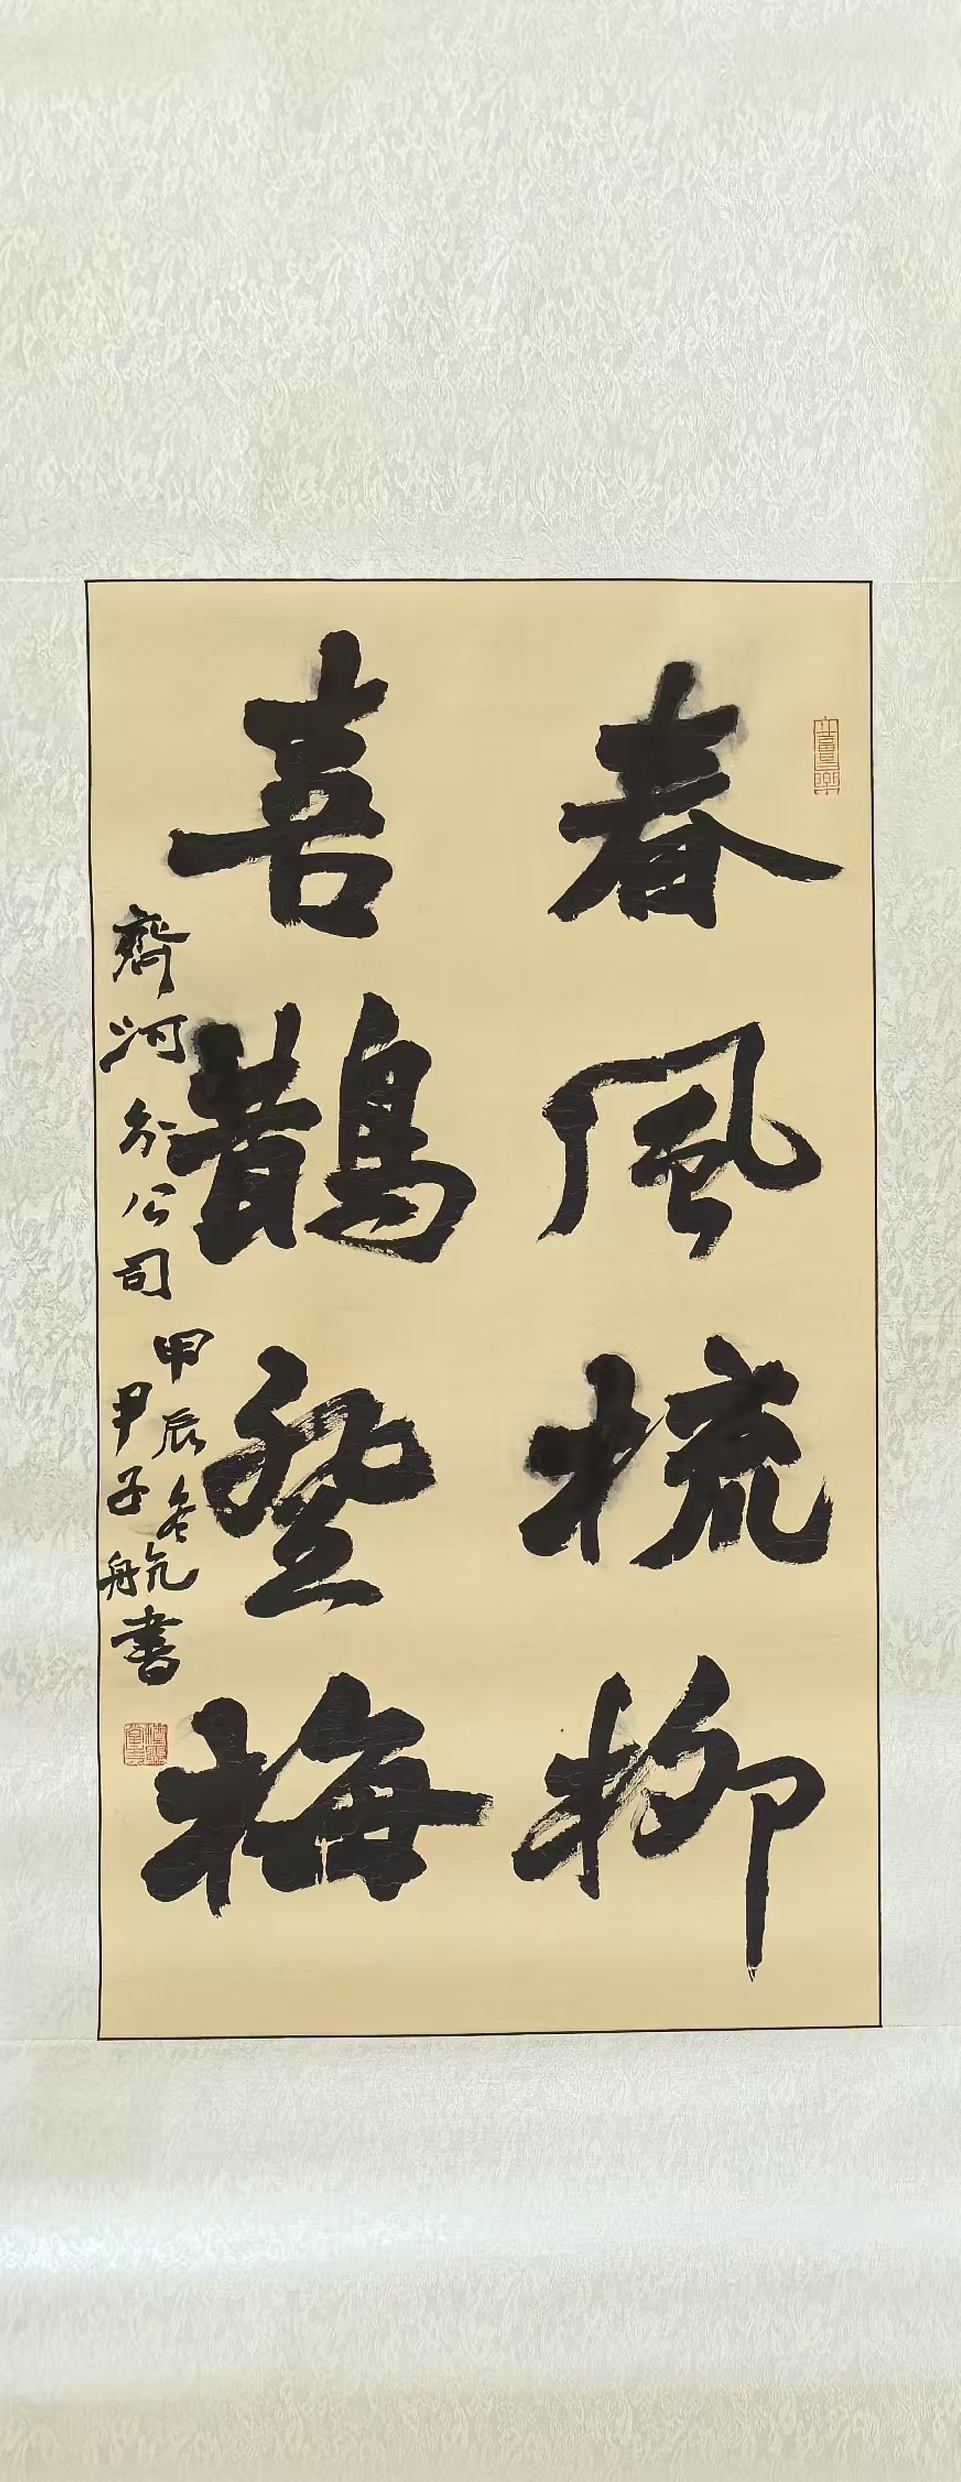 春風梳柳
喜鵲登梅
齊河分公司
甲辰冬
尹子航書